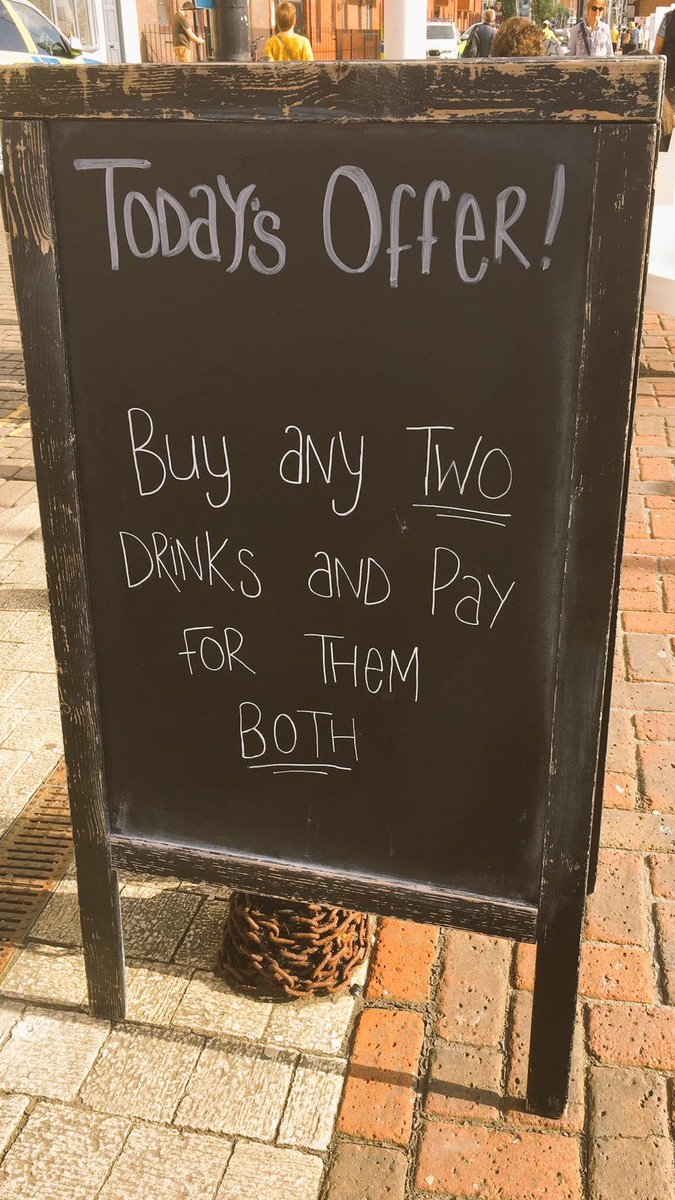 Today's Offer!
Buy any TWO
DRINKS and Pay
FOR THEM
BOTH